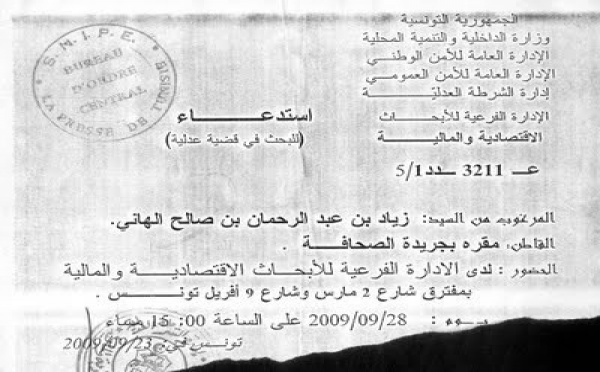 الجمهورية التونسية
وزارة الداخلية والتنمية المحلية
الإدارة العامة للأمن الوطني
الإدارة العامة للأمن العمومي
إدارة الشرطة العدلية
الإدارة الفرعية للأبحاث
الاقتصادية والمالية
عـ 3211 ـدد 5/1
S.M.I.P.E.
BUREAU
D'ORDRE
CENTRAL
LA PRESSE DE TUNISIE
استدعــاء
(للبحث في قضية عدلية)
المرغوب من السيد: زياد بن عبد الرحمان بن صالح الهاني.
القاطن: مقره بجريدة الصحافة .
الحضور : لدى الادارة الفرعية للأبحاث الاقتصادية والمالية
بمفترق شارع 2 مارس وشارع 9 أفريل تونس .
يوم : 2009/09/28 على الساعة 00: 15 مساء
تونس في: 2009/09/23